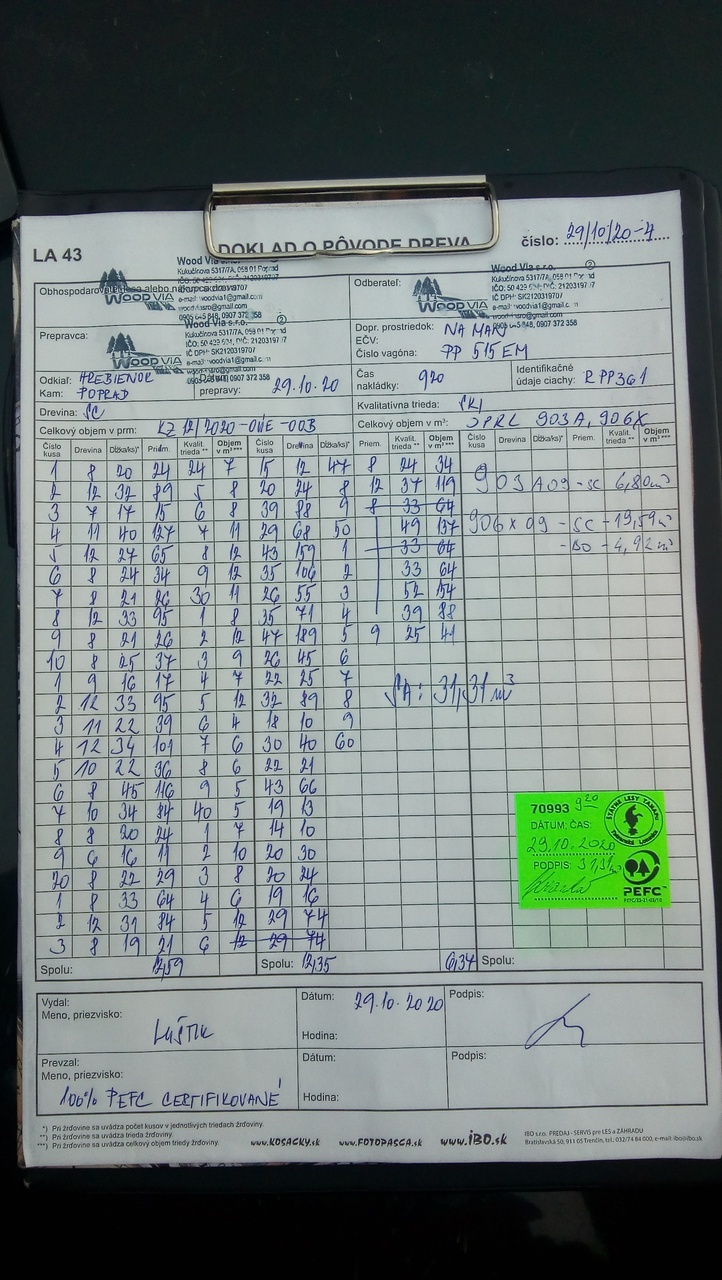 LA 43
DOKLAD O PÔVODE DREVA
číslo: 29/10/20-4
Obhospodarovateľ lesa alebo nákupca dreva:
WOOD VIA
Wood Via s.r.o.
Kukučínova 5317/7A, 058 01 Poprad
e-mail: woodvia1@gmail.com
Odberateľ:
WOOD VIA
Wood Via s.r.o.
Kukučínova 5317/7A, 058 01 Poprad
IČ DPH: SK2120319707
e-mail: woodvia1@gmail.com
0905 645 848, 0907 372 358
Prepravca:
WOOD VIA
Wood Via s.r.o.
Kukučínova 5317/7A, 058 01 Poprad
IČ DPH: SK2120319707
e-mail: woodvia1@gmail.com
Dopr. prostriedok: NA MAN
EČV:
Číslo vagóna: PP 515 EM
Odkiaľ: HREBIENOK
Kam: POPRAD
prepravy: 29.10.20
Čas nakládky: 920
Identifikačné údaje ciachy: RPP361
Drevina: SC
Kvalitatívna trieda:
Celkový objem v prm: KZ 12/2020-OVE-003
Celkový objem v m³: JPRL 903A, 906X
Číslo kusa Drevina Dĺžka/ks)* Priem. Kvalit. trieda ** Objem v m³ *** Číslo kusa Drevina Dĺžka/ks)* Priem. Kvalit. trieda ** Objem v m³ *** Číslo kusa Drevina Dĺžka/ks)* Priem. Kvalit. trieda ** Objem v m³ ***
1 8 20 24 24 7 15 12 47 8 24 34
2 12 32 89 5 8 20 24 8 12 37 119
903A09 - SC 6,80m³
3 7 17 15 6 8 39 88 9 8 33 64
4 11 40 127 7 11 29 68 50 49 137
906X09 - SC - 19,59m³
5 12 27 65 8 12 43 159 1 33 64
- BO - 4,92m³
6 8 24 34 9 12 35 106 2 33 64
7 8 21 26 30 11 26 55 3 52 154
8 12 33 95 1 8 35 71 4 39 88
9 8 21 26 2 12 47 189 5 9 25 41
10 8 25 37 3 9 26 45 6
1 9 16 17 4 7 22 25 7
2 12 33 95 5 12 32 89 8
SA: 31,31 m³
3 11 22 39 6 4 18 10 9
4 12 34 101 7 6 30 40 60
5 10 22 36 8 6 22 21
6 8 45 116 9 5 43 66
7 10 34 84 40 5 19 13
8 8 20 24 1 7 14 10
9 6 16 11 2 10 20 30
20 8 22 29 3 8 20 24
1 8 33 64 4 6 19 16
2 12 31 84 5 12 29 74
3 8 19 21 6 12 29 74
70993 920
DÁTUM, ČAS:
29.10.2020
PODPIS: 31,31m³
ŠTÁTNE LESY TANAPU
Tatranská Lomnica
PEFC
Spolu: 12,59
Spolu: 12,35 6,34
Spolu:
Vydal:
Meno, priezvisko:
LUŠTIK
Dátum: 29.10.2020
Hodina:
Podpis:
Prevzal:
Meno, priezvisko:
100% PEFC CERTIFIKOVANÉ
Dátum:
Hodina:
Podpis:
*) Pri žrďovine sa uvádza počet kusov v jednotlivých triedach žrďoviny.
**) Pri žrďovine sa uvádza trieda žrďoviny.
***) Pri žrďovine sa uvádza celkový objem triedy žrďoviny.
www.KOSACKY.sk
www.FOTOPASCA.sk
www.IBO.sk
IBO s.r.o. PREDAJ - SERVIS pre LES a ZÁHRADU
Bratislavská 50, 911 05 Trenčín, tel.: 032/74 84 000, e-mail: ibo@ibo.sk